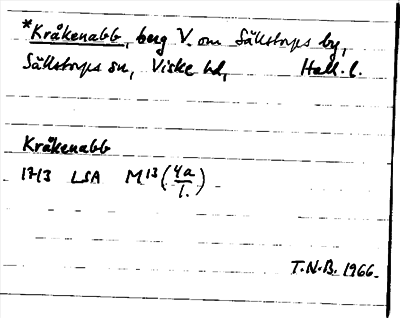 *Kråkenabb, berg V. om Sällstorps by,
Sällstorps sn, Viske hd, Hall. l.
Kråkenabb
1713 LSA M13 (4a/1.)
T.N.B. 1966.